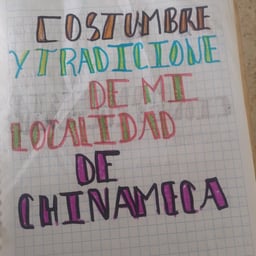 COSTUMBRE
Y TRADICIONE
DE MI
LOCALIDAD
DE
CHINAMECA